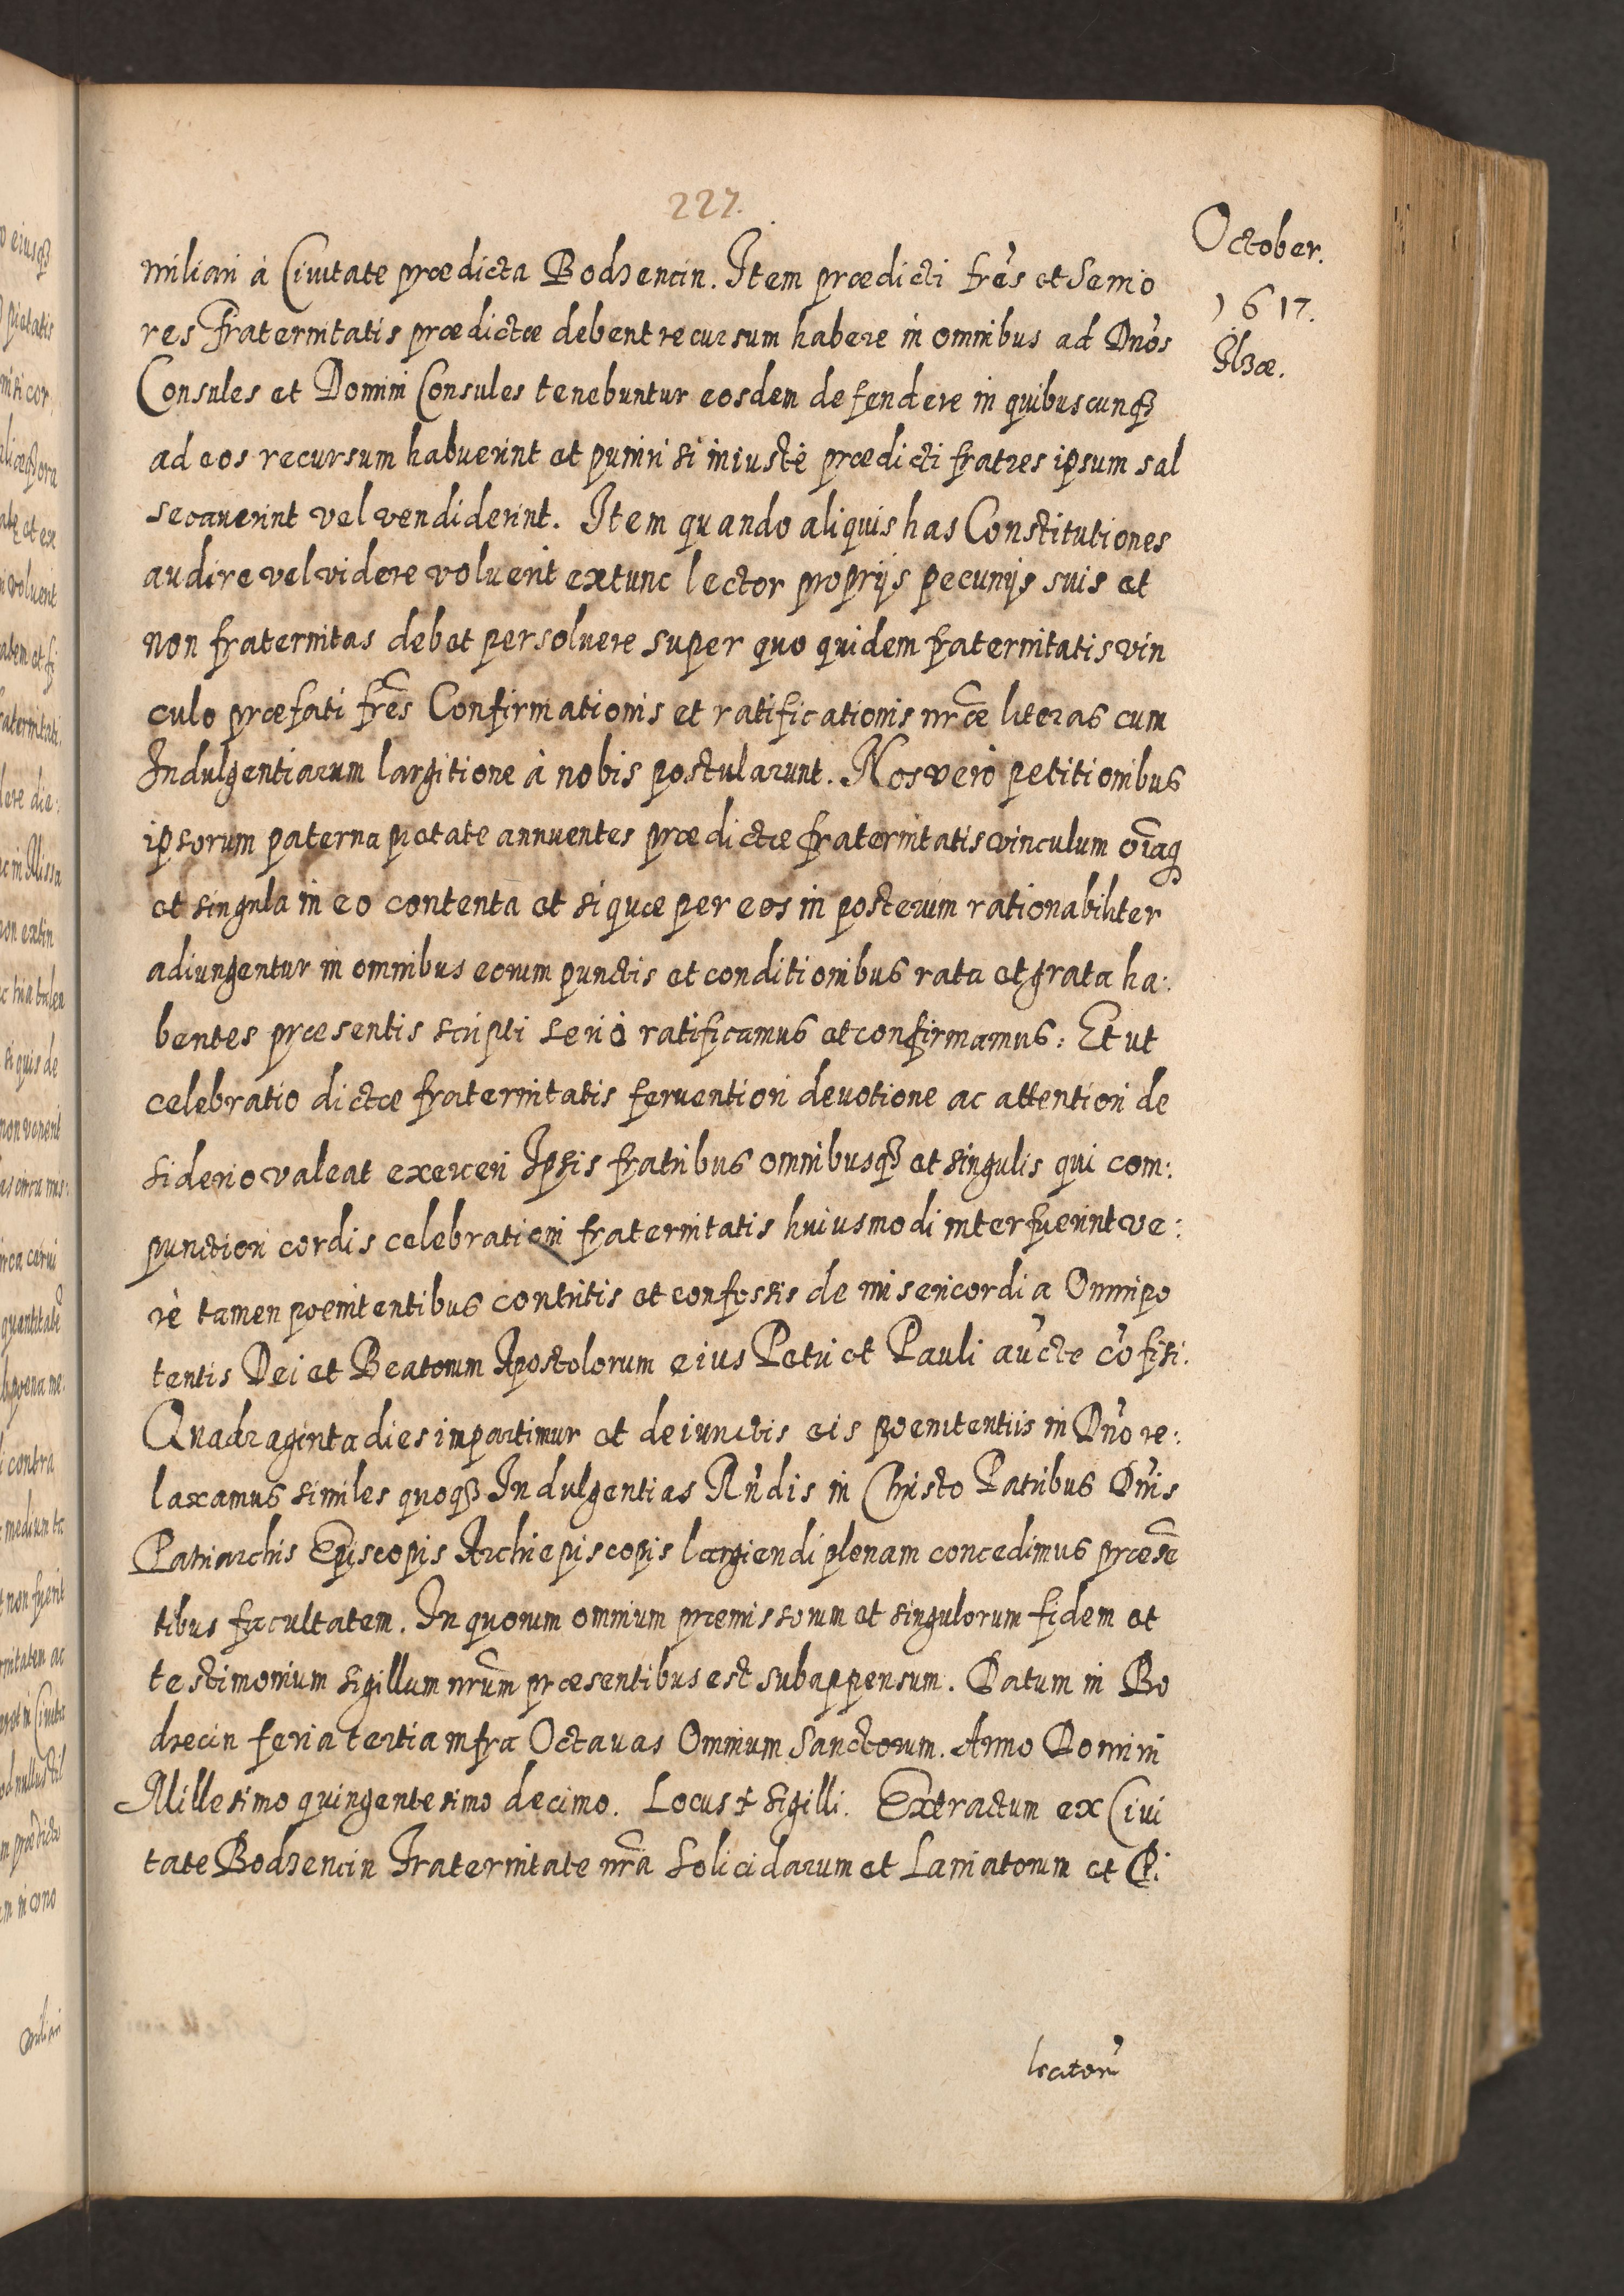 227.
October.
1617.
Ilzæ.
miliari à Ciuitate prædicta Bodzencin. Item prædicti frẽs et Senio
res Fraternitatis prædictæ debent recursum habere in omnibus ad Dnõs
Consules et Domini Consules tenebuntur eosdem defendere in quibuscunqȝ
ad eos recursum habuerint et puniri si iniustè prædicti fratres ipsum sal
secauerint vel vendiderint. Item quando aliquis has Constitutiones
audire vel videre voluerit extunc lector proprijs pecunijs suis et
non fraternitas debet persoluere super quo quidem fraternitatis vin
culo præfati frẽs Confirmationis et ratificationis nrãe literas cum
Indulgentiarum largitione à nobis postularunt. Nos verò petitionibus
ipsorum paterna pietate annuentes prædictæ fraternitatis vinculum oĩaq
et singula in eo contenta et si quæ per eos in posterum rationabiliter
adiungentur in omnibus eorum punctis et conditionibus rata et grata ha:
bentes præsentis scripti seriò ratificamus et confirmamus: Et ut
celebratio dictæ fraternitatis feruentiori deuotione ac attentiori de
siderio valeat exerceri Ipsis fratribus omnibusqȝ et singulis qui com:
punctiori cordis celebrationi fraternitatis huiusmodi interfuerint ve:
rè tamen poenitentibus contritis et confessis de misericordia Omnipo
tentis Dei et Beatorum Apostolorum eius Petri et Pauli auc̃te cõfisi.
Quadraginta dies impartimur et de iunctis eis poenitentiis in Dnõ re:
laxamus similes quoqȝ Indulgentias Rñdis in Christo Patribus Dñis
Patriarchis Episcopis Archiepiscopis largiendi plenam concedimus præsẽ
tibus facultatem. In quorum omnium præmissorum et singulorum fidem et
testimonium sigillum nrũm præsentibus est subappensum. Datum in Bo
dzecin feria tertia infra Octauas Omnium Sanctorum. Anno Domini
Millesimo quingentesimo decimo. Locus ☩ Sigilli. Extractum ex Ciui
tate Bodzencin Fraternitate nrã Solicidarum et Laniatorum et Pi